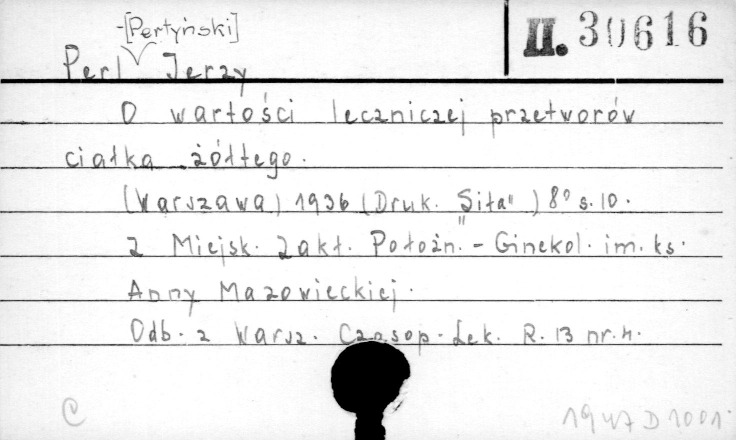 -[Pertyński]
II. 30616
Perl Jerzy
O wartości leczniczej przetworów
ciałka żółtego.
(Warszawa) 1936 (Druk. "Siła") 8° s. 10.
Z Miejsk. Zakł. Położn. - Ginekol. im. ks.
Anny Mazowieckiej.
Odb. z Warsz. Czasop. Lek. R. 13 nr. 4.
C 1947 D 1001.